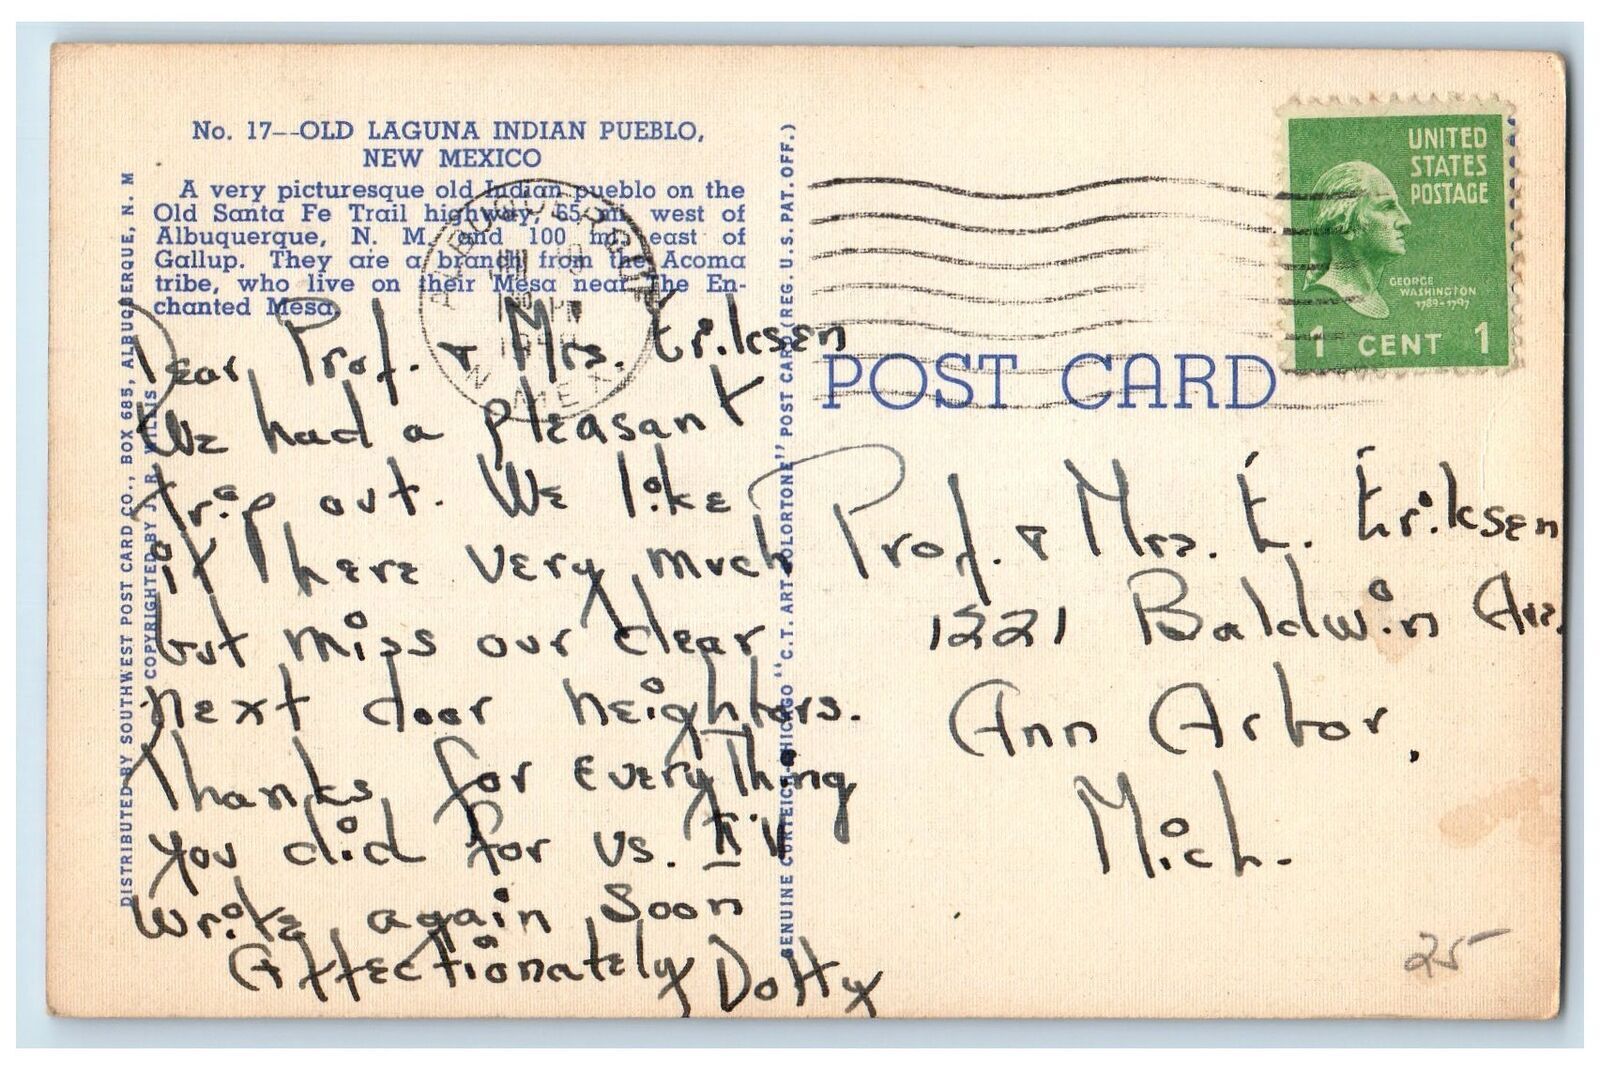 No. 17--OLD LAGUNA INDIAN PUEBLO,
NEW MEXICO
A very picturesque old Indian pueblo on the
Old Santa Fe Trail highway, 65 mi. west of
Albuquerque, N. M. and 100 mi. east of
Gallup. They are a branch from the Acoma
tribe, who live on their Mesa near The En-
chanted Mesa.
Dear Prof. & Mrs. Eriksen
We had a pleasant
trip out. We like
it here very much
but miss our clear
next door neighbors.
Thanks for everything
you did for us. I'll
write again soon
Affectionately Dotty
DISTRIBUTED BY SOUTHWEST POST CARD CO., BOX 685, ALBUQUERQUE, N. M
COPYRIGHTED BY J. R. WILLIS
GENUINE CURTEICH-CHICAGO "C.T. ART-COLORTONE" POST CARD (REG. U.S. PAT. OFF.)
ALBUQUERQUE
N. MEX.
UNITED
STATES
POSTAGE
GEORGE
WASHINGTON
1789-1797
1 CENT 1
POST CARD
Prof. & Mrs. E. Eriksen
1221 Baldwin Ave.
Ann Arbor,
Mich.
25